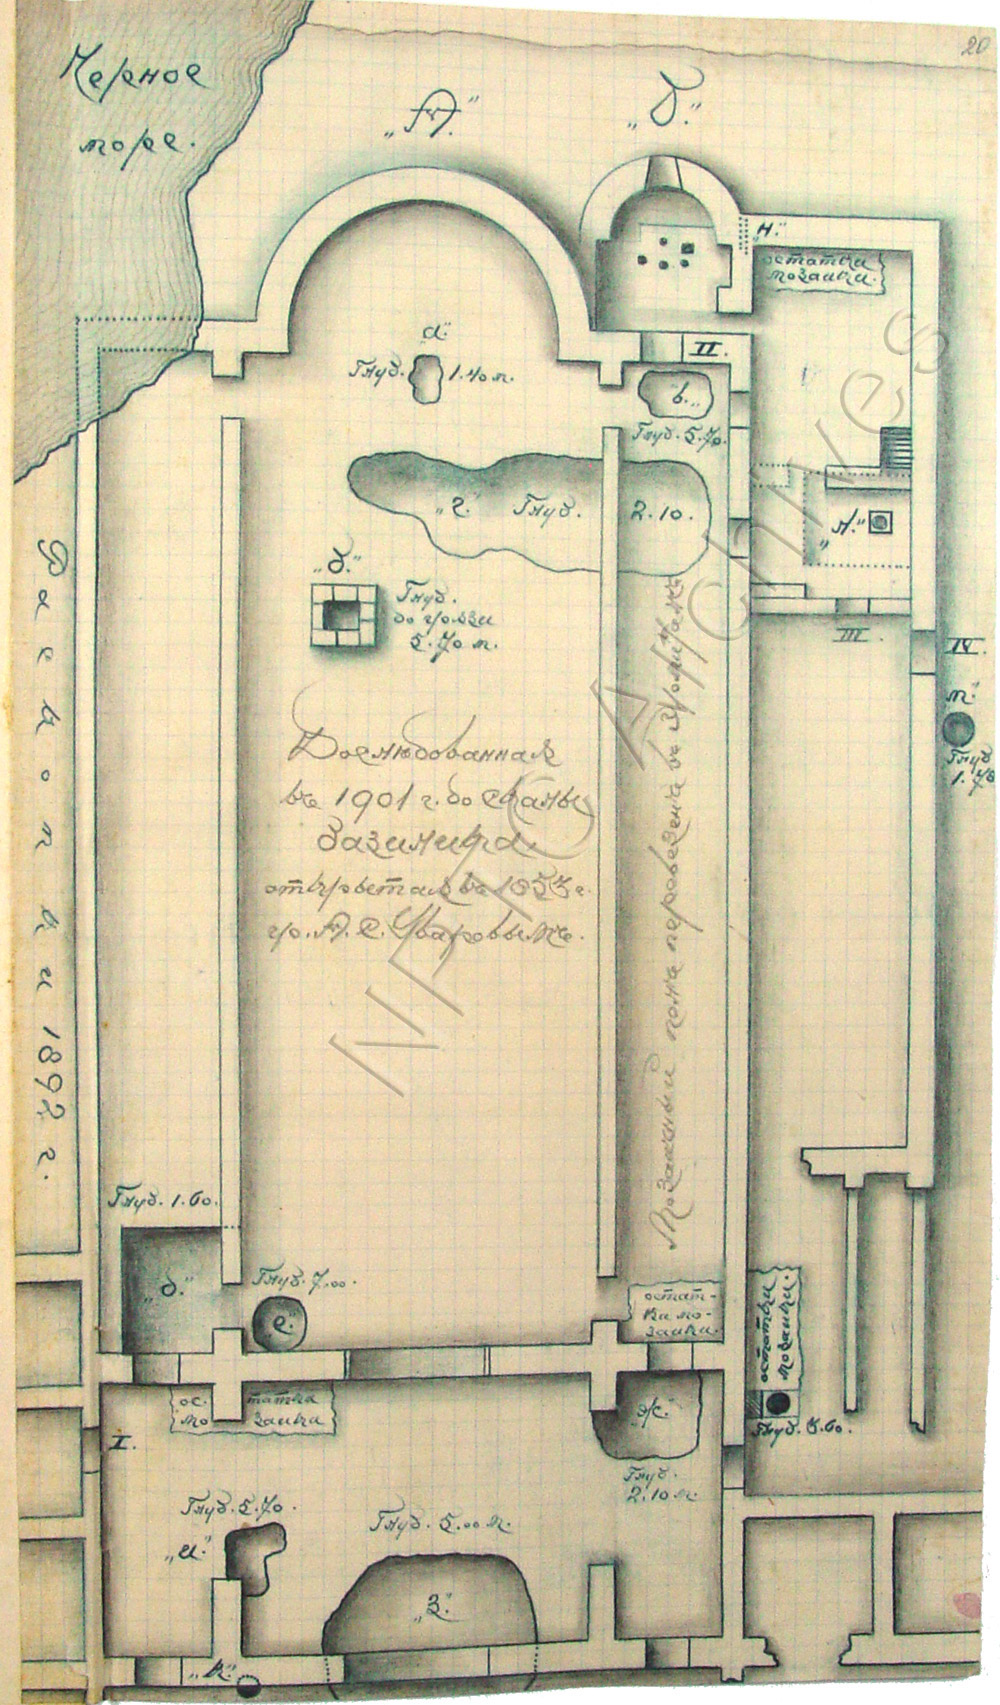 20
Черное
море.
„А.“
„Б.“
„Н.“
остатки
мозаики.
„а.“
Глуб. 1.40 м.
II.
„в.“
Глуб. 5.70.
„г.“ Глуб. 2.10.
„Л.“
„б.“
Глуб.
до грязи
5.70 м.
III.
IV.
„м.“
Глуб
1.70
Раскопки 1892 г.
Дослѣдованная
въ 1901 г. до скалы
базилика,
открытая въ 1853 г.
гр. А. С. Уваровымъ.
Мозаичный полъ перевезенъ въ Эрмитажъ
NPTC Archives
Глуб. 1.60.
„д.“
Глуб. 7.00.
„е.“
остат-
ки мо-
заики.
остатки
мозаики.
Глуб. 3.60.
ос- татки
мо заики
„ж.“
Глуб.
2.10 м.
I.
Глуб. 5.70.
„и.“
Глуб. 5.00 м.
„з.“
„к.“